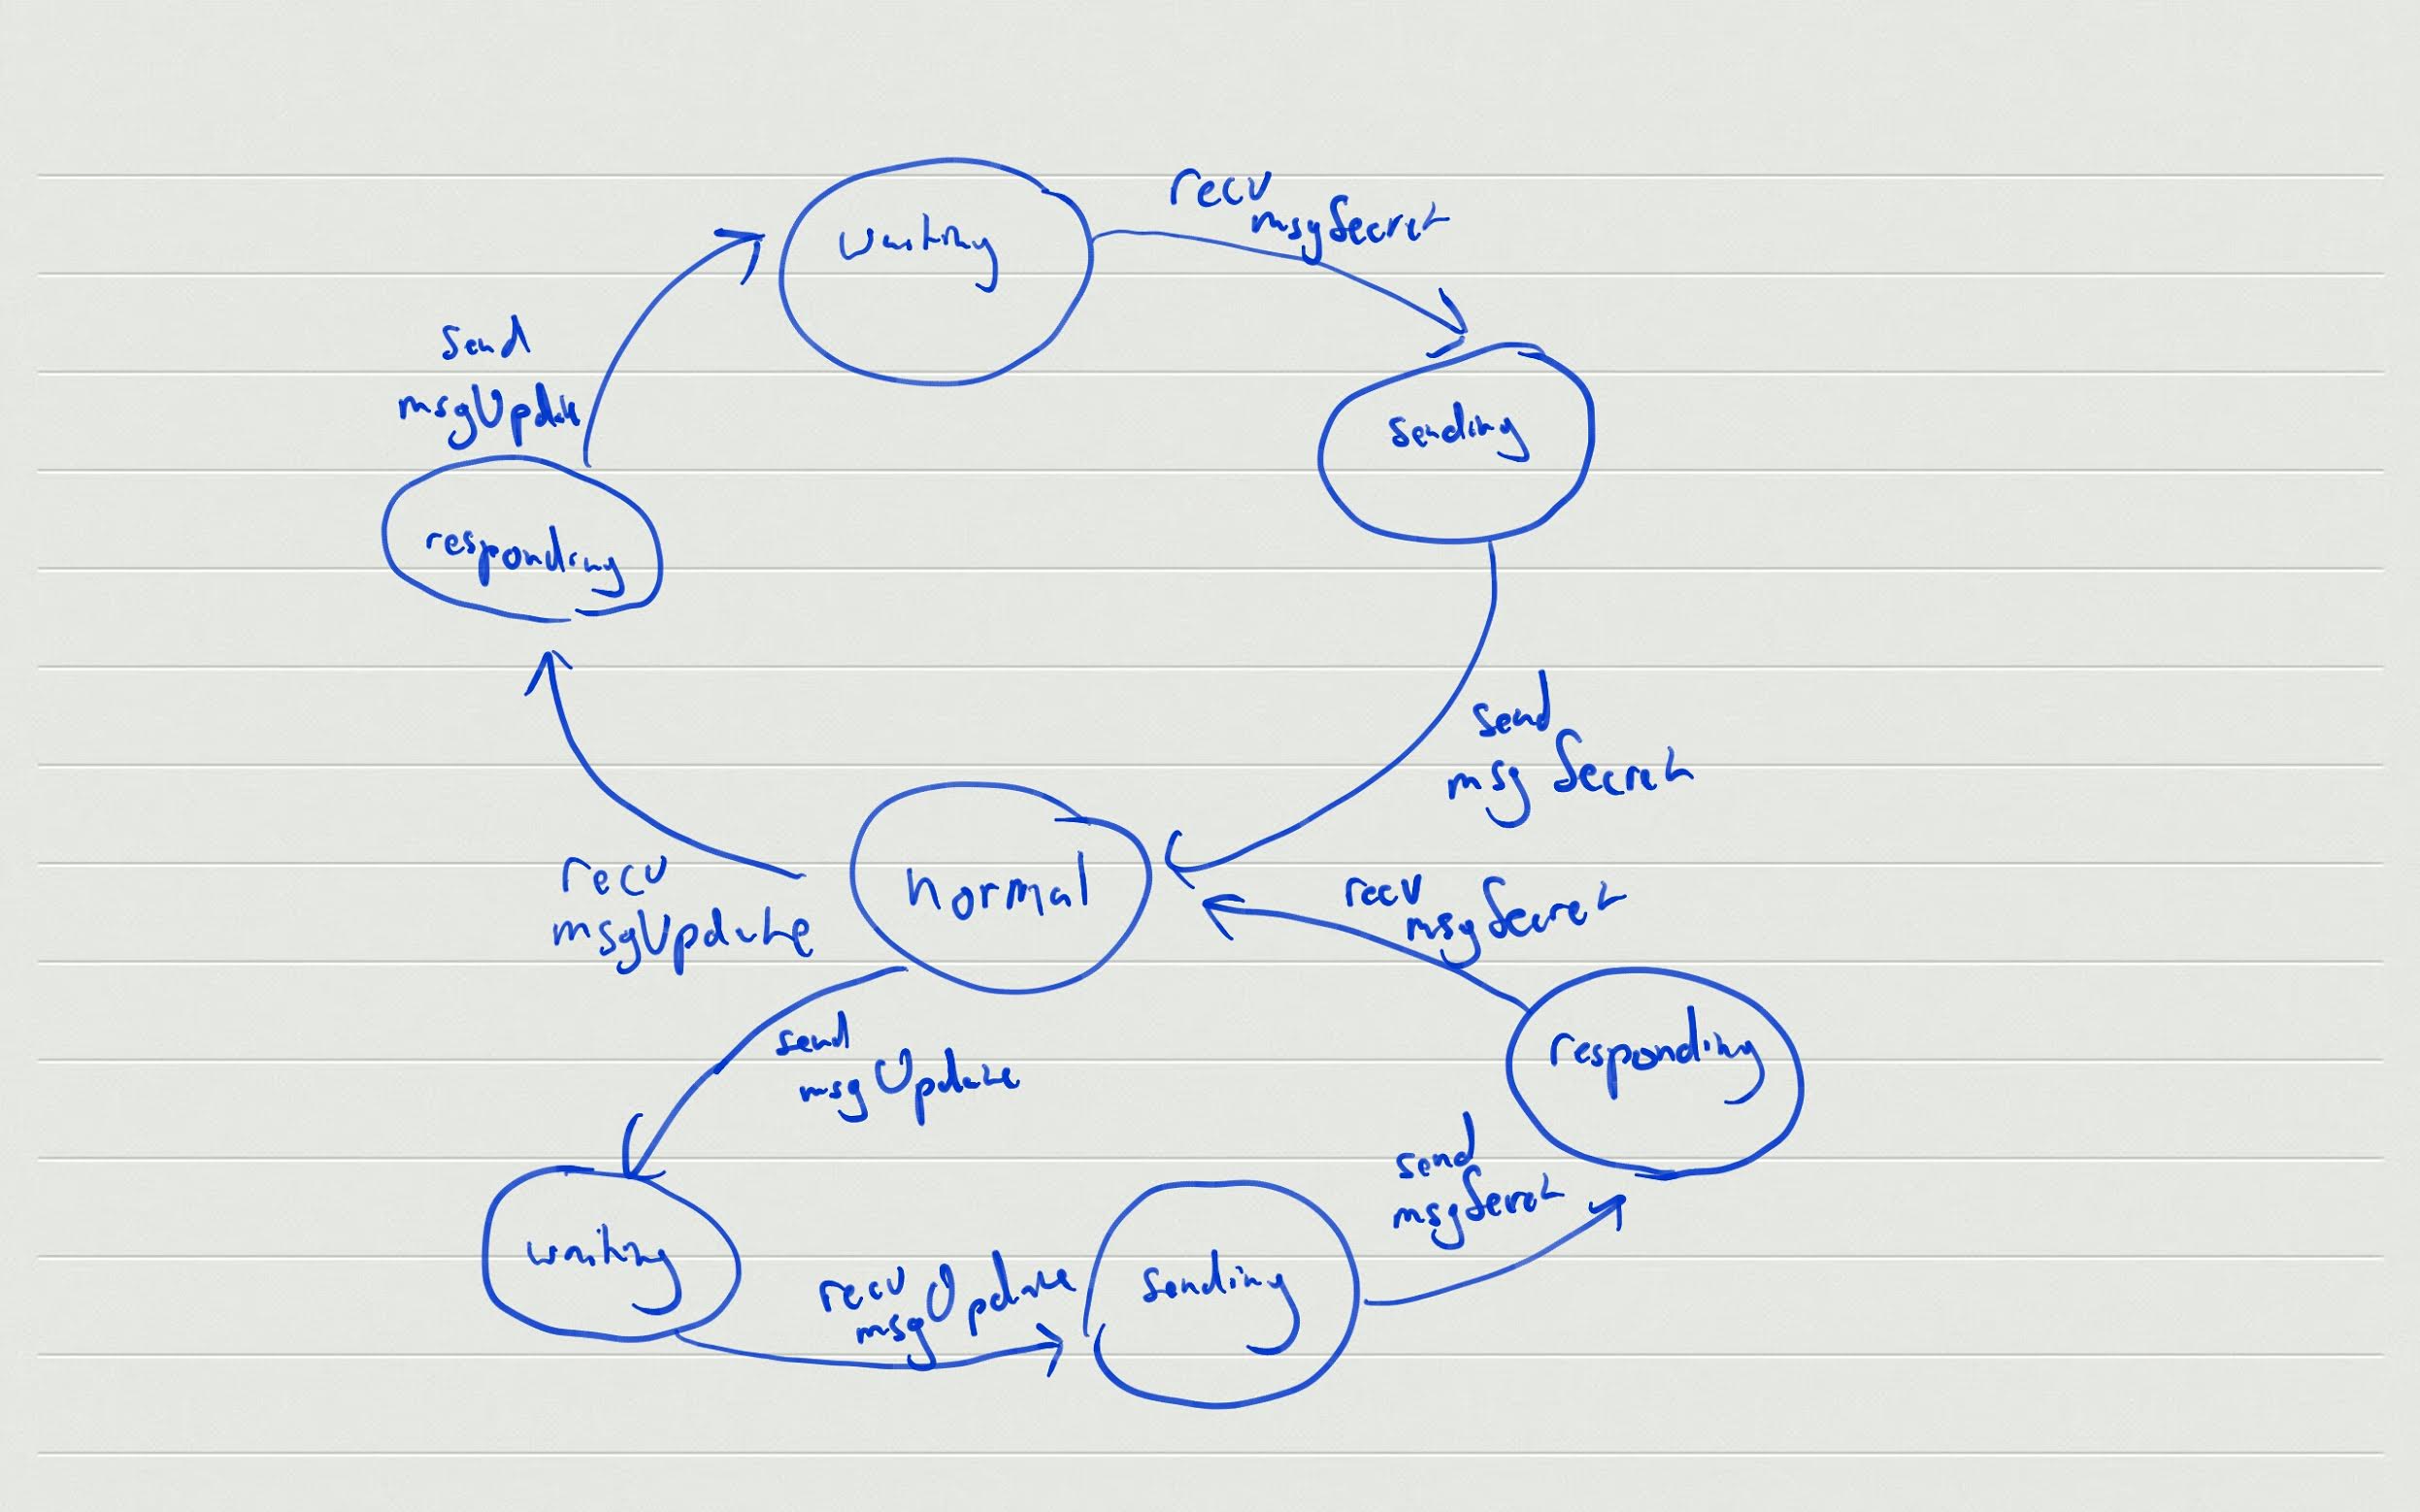 waiting
recv
msgSecret
send
msgUpdate
sending
responding
send
msg Secret
recv
msgUpdate
normal
recv
msgSecret
send
msgUpdate
responding
send
msgSecret
waiting
recv
msgUpdate
sending